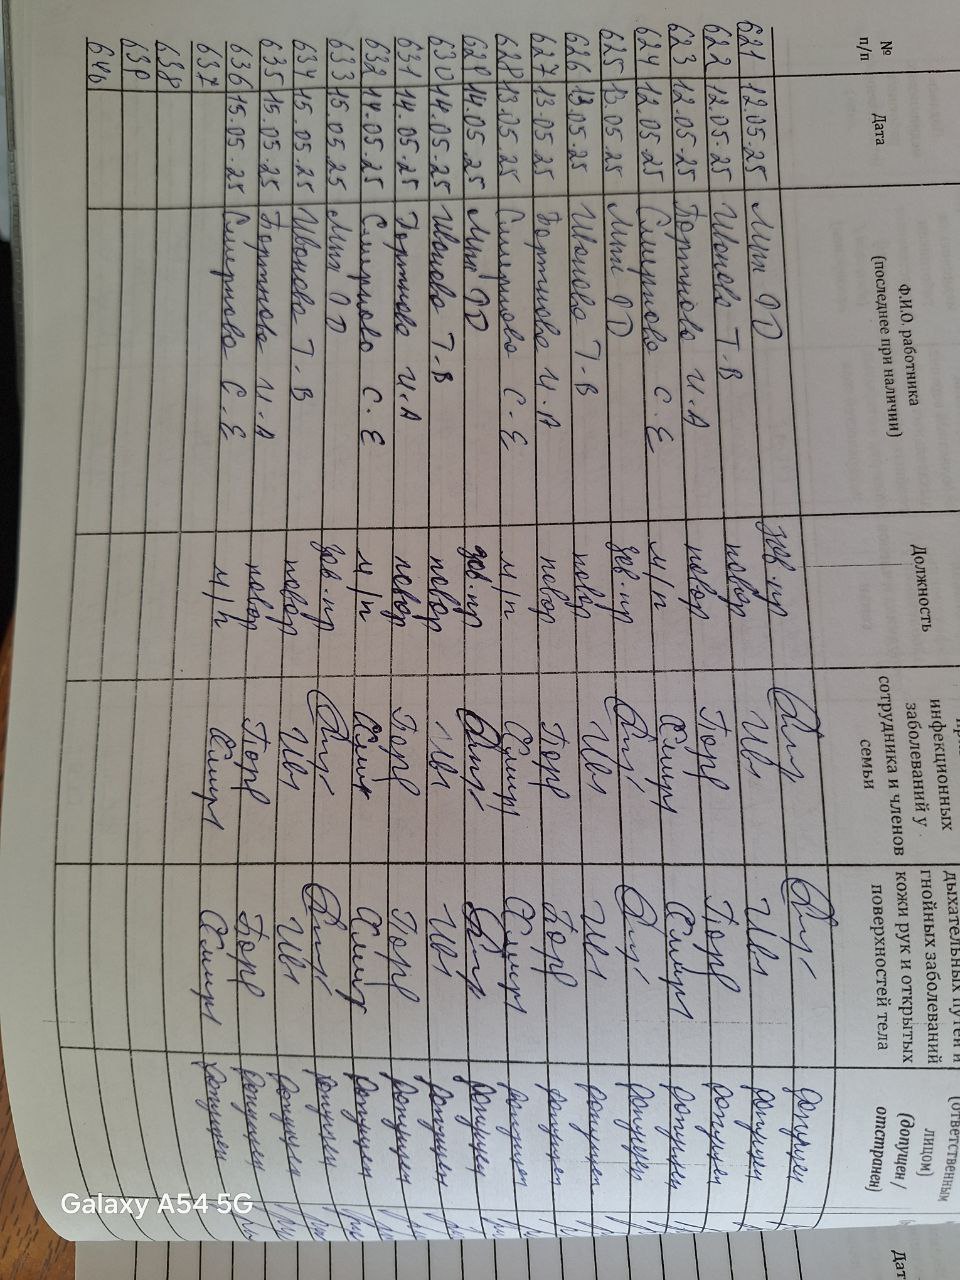 № п/п Дата Ф.И.О. работника (последнее при наличии) Должность инфекционных заболеваний у сотрудника и членов семьи дыхательных путей и гнойных заболеваний кожи рук и открытых поверхностей тела (ответственным лицом) (допущен / отстранен)
621 12.05.25 зав.пр допущен
622 12.05.25 Иванова Т.В повар Ив допущен
623 12.05.25 Портнова И.А повар допущен
624 12.05.25 Смирнова С.Е м/п допущен
625 13.05.25 зав.пр допущен
626 13.05.25 Иванова Т.В повар Ив допущен
627 13.05.25 Портнова И.А повар допущен
628 13.05.25 Смирнова С.Е м/п допущен
629 14.05.25 зав.пр допущен
630 14.05.25 Иванова Т.В повар Ив допущен
631 14.05.25 Портнова И.А повар допущен
632 14.05.25 Смирнова С.Е м/п допущен
633 15.05.25 зав.пр допущен
634 15.05.25 Иванова Т.В повар Ив допущен
635 15.05.25 Портнова И.А повар допущен
636 15.05.25 Смирнова С.Е м/п допущен
637
638
639
640
Galaxy A54 5G